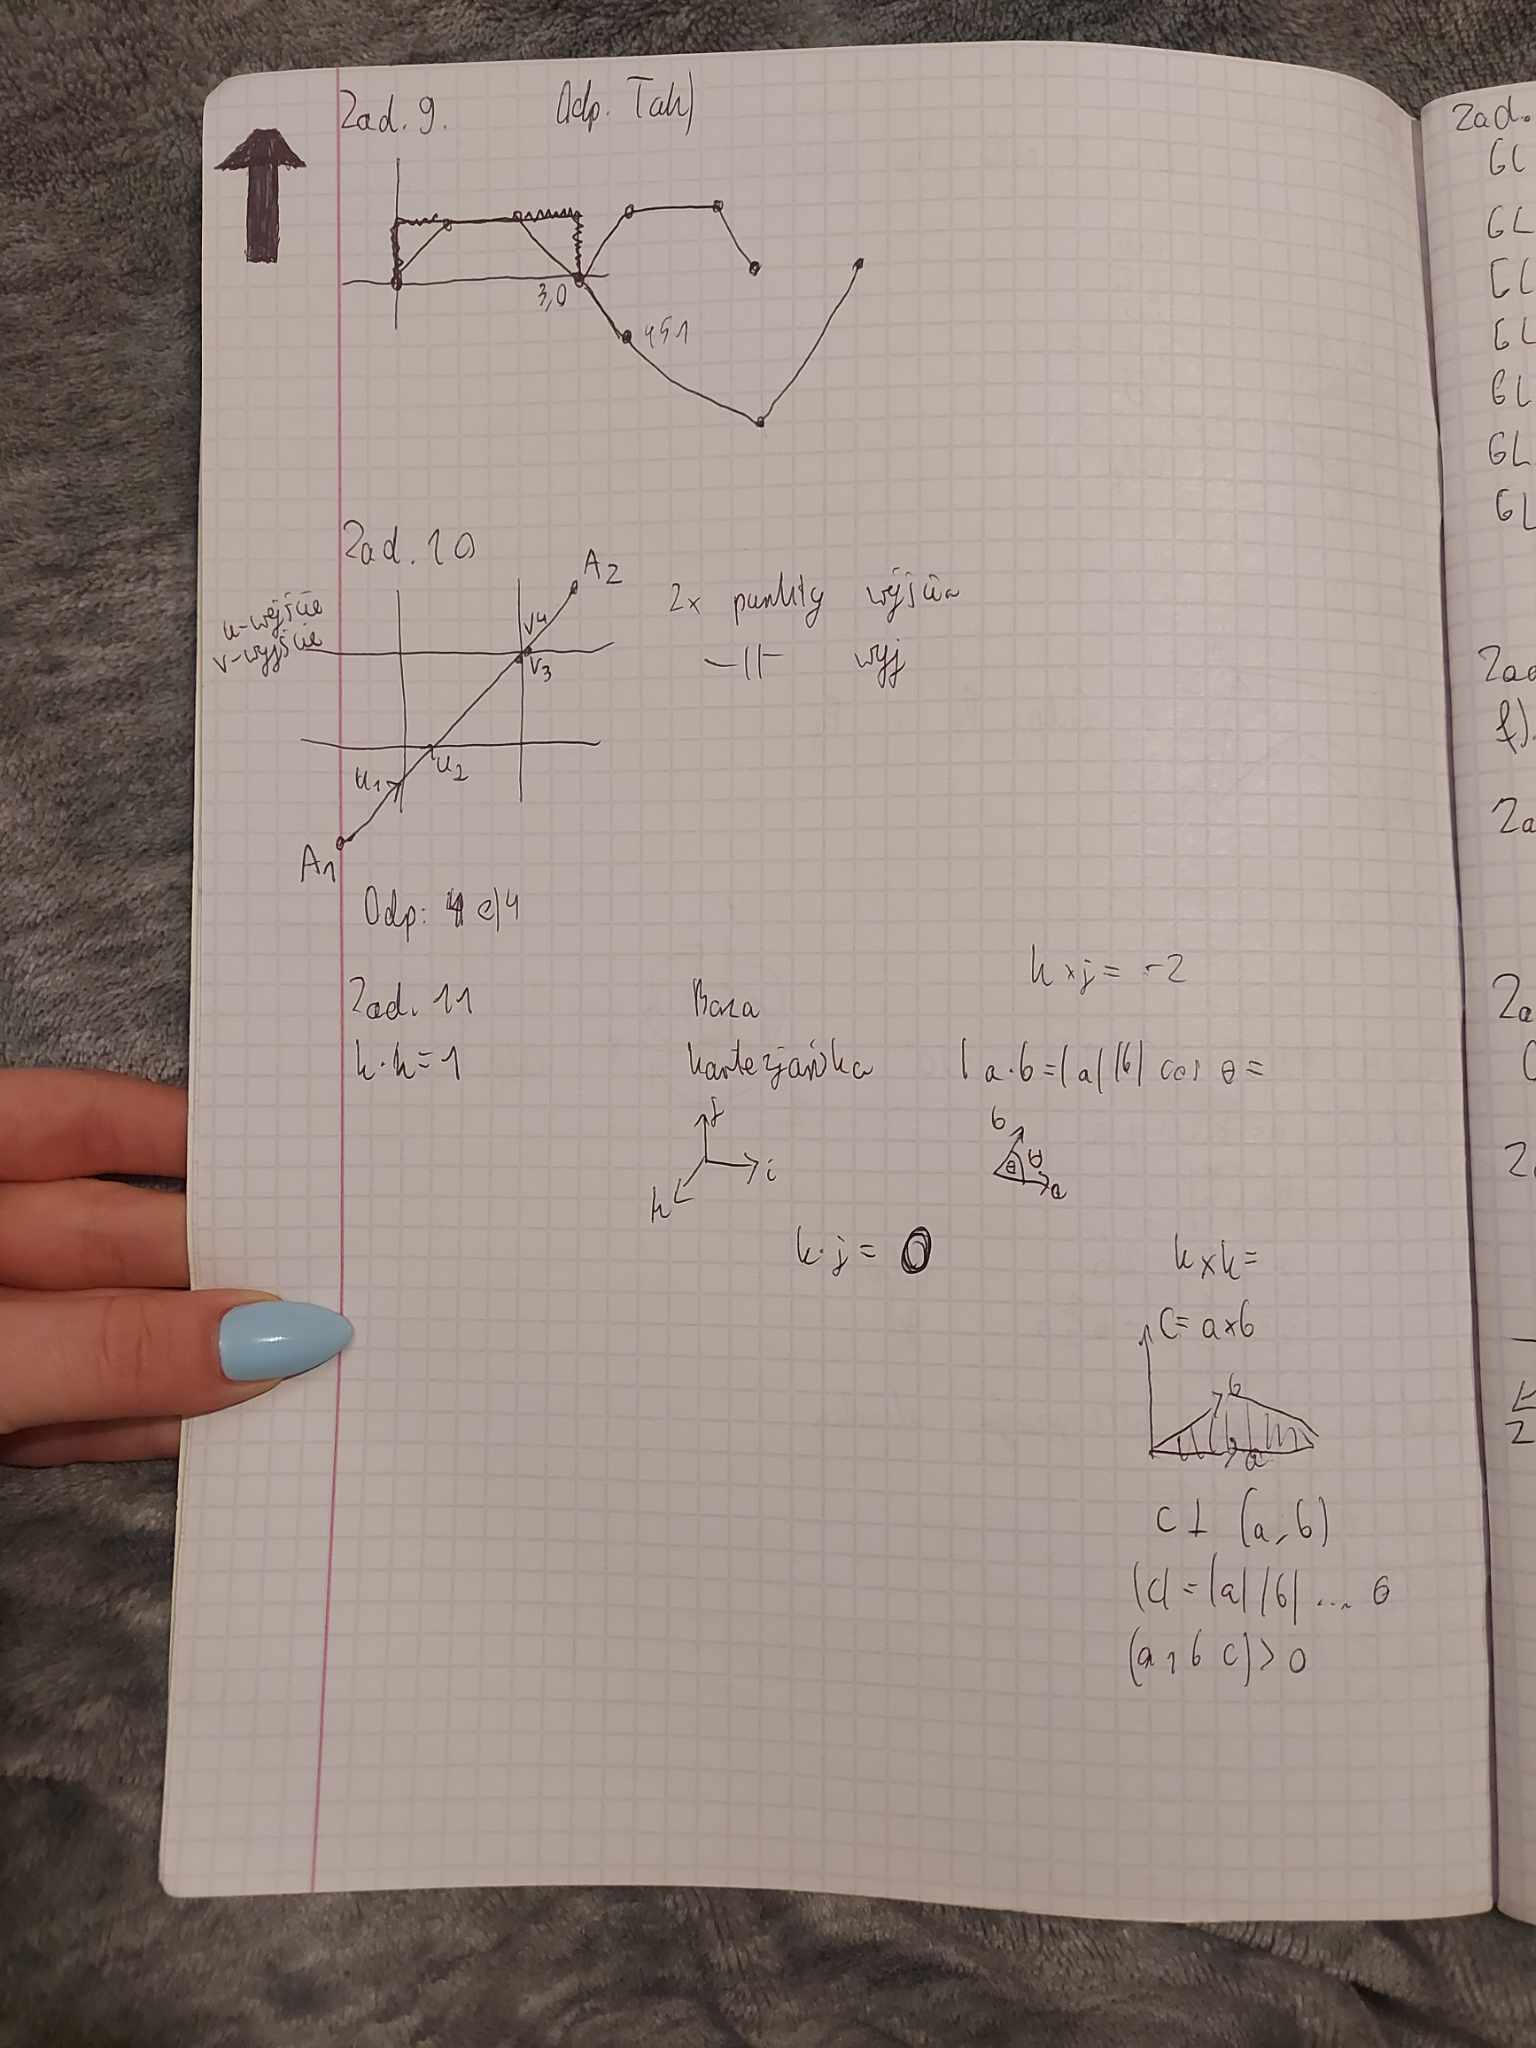 Zad. 9. Odp. Tak)
3,0
4,5 1
Zad. 10
u-wejście
v-wyjście
A2
V4
V3
u2
u1
A1
2x punkty wejścia
-||- wyj
Odp: c) 4
Zad. 11
k·k=1
Baza
kartezjańska
j
i
k
k·j = 0
k×j = -2
a·b=|a||b| cos θ =
b
θ
θ
a
k×k=
C= a×b
b
a
c⊥ (a,b)
|c|=|a||b| ... θ
(a, b c)>0
Zad.
GL
GL
GL
GL
GL
GL
GL
Zad
f).
Za
Za